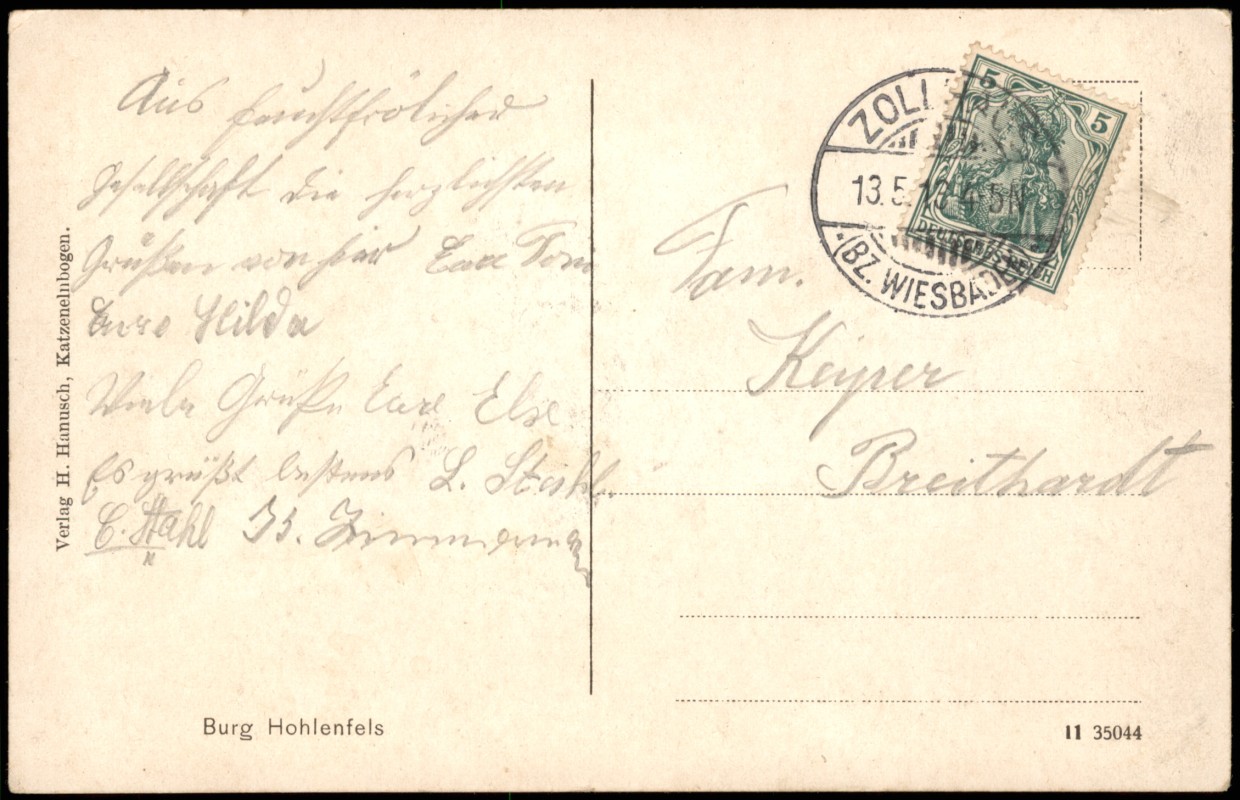 Aus feuchtfrölicher
Gesellschaft die herzlichsten
Grüßen von hier Eure Toni
Eure Hilda
Viele Grüße Eure Else
Es grüßt bestens L. Stahl.
E. Stahl
Verlag H. Hanusch, Katzenelnbogen.
Burg Hohlenfels
5 5
DEUTSCHES REICH
ZOLLHAUS
13.5.13 4-5N
(BZ. WIESBADEN)
Fam.
Keiper
Breithardt
11 35044